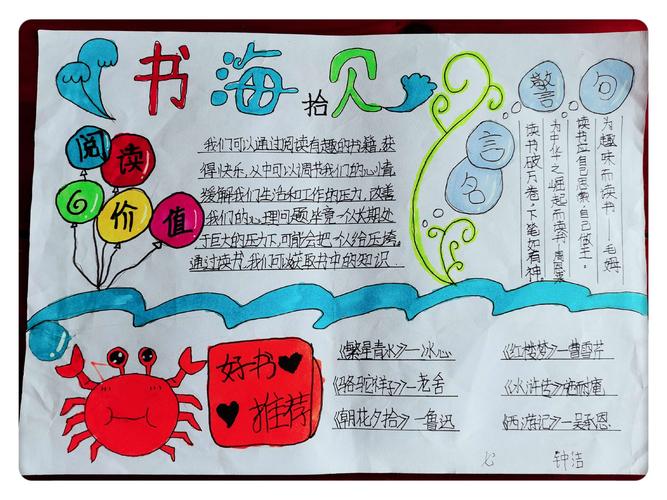 书海拾贝
阅读
的价值
我们可以通过阅读有趣的书籍,获
得快乐,从中可以调节我们的心情,
缓解我们生活和工作的压力,改善
我们的心理问题,毕竟一个人长期处
于巨大的压力下,可能会把一个人给压垮,
通过读书,我们可以获取书中的知识
名言警句
为趣味而读书——毛姆
读书应自己思索,自己做主。
为中华之崛起而读书——周恩来
读书破万卷,下笔如有神。
好书
推荐
《繁星春水》—冰心
《骆驼祥子》—老舍
《朝花夕拾》—鲁迅
《红楼梦》—曹雪芹
《水浒传》施耐庵
《西游记》—吴承恩
钟洁